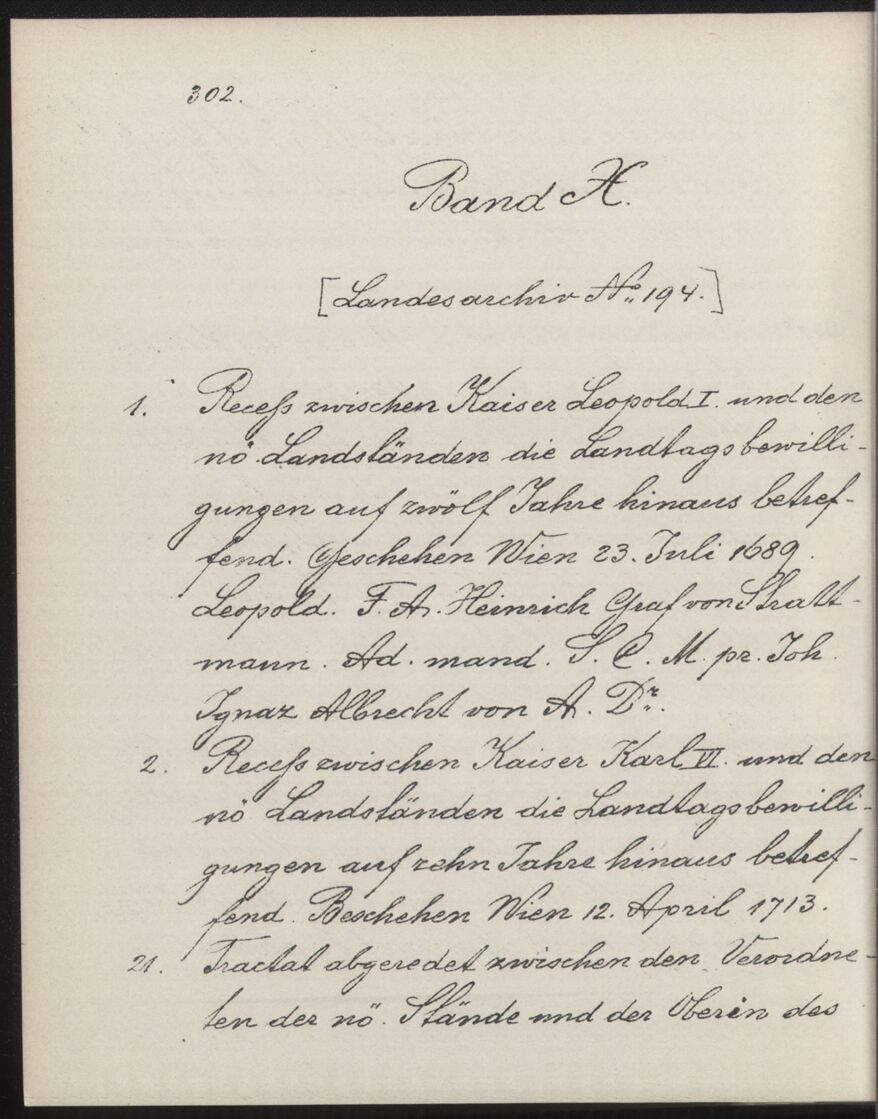 302.
Band X.
[Landesarchiv No. 194.]
1. Recess zwischen Kaiser Leopold I. und den
nö. Landständen die Landtagsbewilli-
gungen auf zwölf Jahre hinaus betref-
fend. Geschehen Wien 23. Juli 1689.
Leopold. F. A. Heinrich Graf von Stratt-
mann. Ad. mand. S. C. M. pr. Joh.
Ignaz Albrecht von A. Dr.
2. Recess zwischen Kaiser Karl VI. und den
nö Landständen die Landtagsbewilli-
gungen auf zehn Jahre hinaus betref-
fend. Beschehen Wien 12. April 1713.
21. Tractat abgeredet zwischen den Verordne-
ten der nö. Stände und der Oberin des